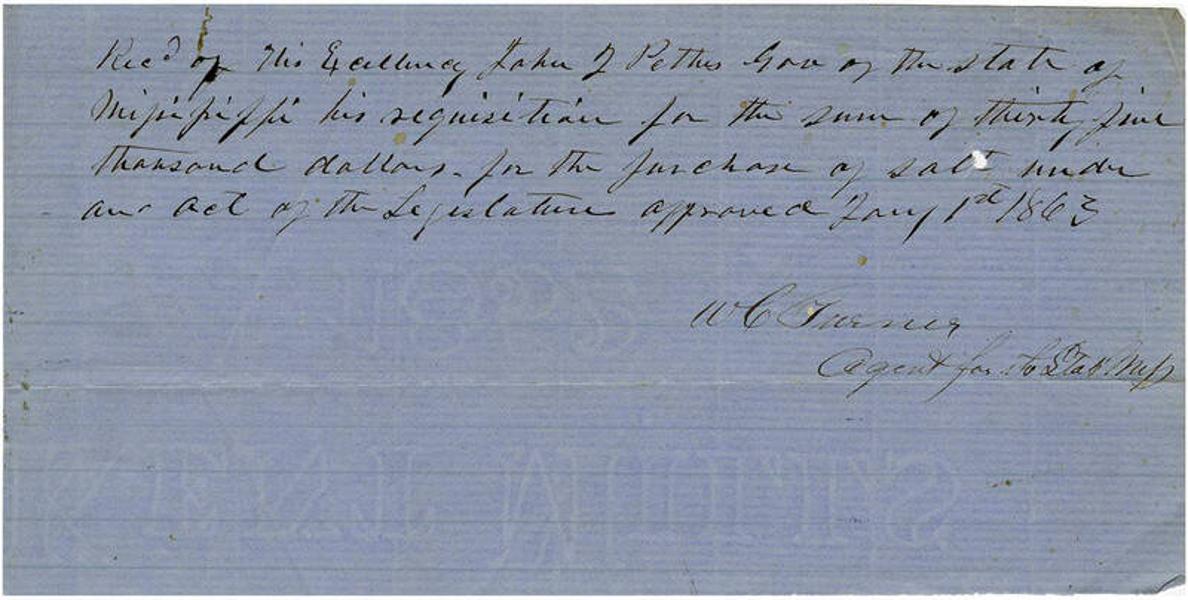 Recd of His Excellency John J Pettus Gov of the state of
Mississippi his requisition for the sum of thirty five
thousand dollars. for the purchase of salt under
an act of the Legislature approved Jany 1st 1863
W C Turner
Agent for the State Miss